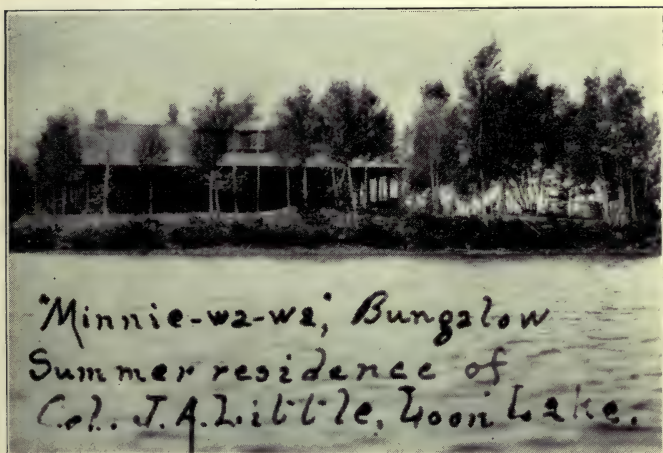 "Minnie-wa-wa", Bungalow
Summer residence of
Col. J.A. Little, Loon Lake.